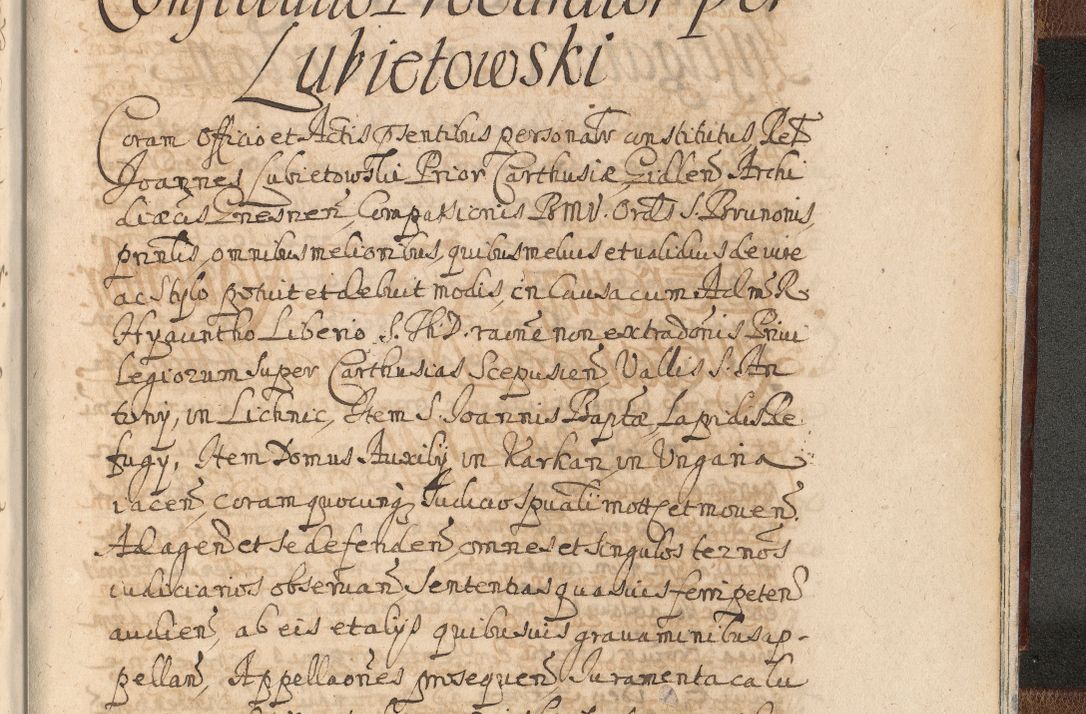 Constitutio Procurator per
Lubietowski
Coram Officio et Actis psentibus personalr constitutus Ret
Joannes Lubietowski Prior Carthusiæ Gidlen Archi
diæcis Gnesnen, Compassionis BMV. Ordis S. Brunonis,
prntis, omnibus melioribus, quibus melius et validius de iure
ac Stylo potuit et debuit modis, in Causa cum Adm R.
Hyacintho Liberio S. Th. D. raõne non extradonis Privi
legiorum super Carthusias Scepusien, Vallis S. An
tonij, in Lichnic, Item S. Joannis Baptæ, Lapidis Re
fugij, Item Domus Auxilij in Karkan in Ungaria
iacen, coram quocunq Iudicio Spuali mott et moven.
Ad agend et se defenden, omnes et singulos termos
iudiciarios observan, Sententias quasvis ferri peten
audien, ab eis et alijs quibusvis gravaminibus ap-
pellan, Appellaones prosequen, Iuramenta calu